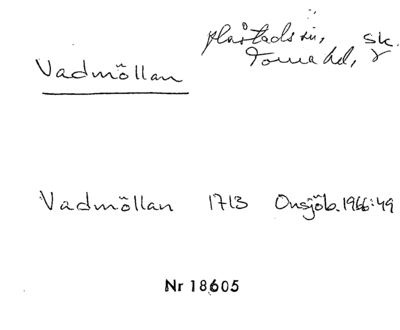 plåstads sn, Sk.
Torna hd,
Vadmöllan
Vadmöllan 1713 Onsjöb. 1966:49
Nr 18605